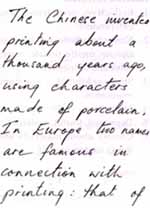 The Chinese invented
printing about a
thousand years ago,
using characters
made of porcelain.
In Europe two names
are famous in
connection with
printing: that of